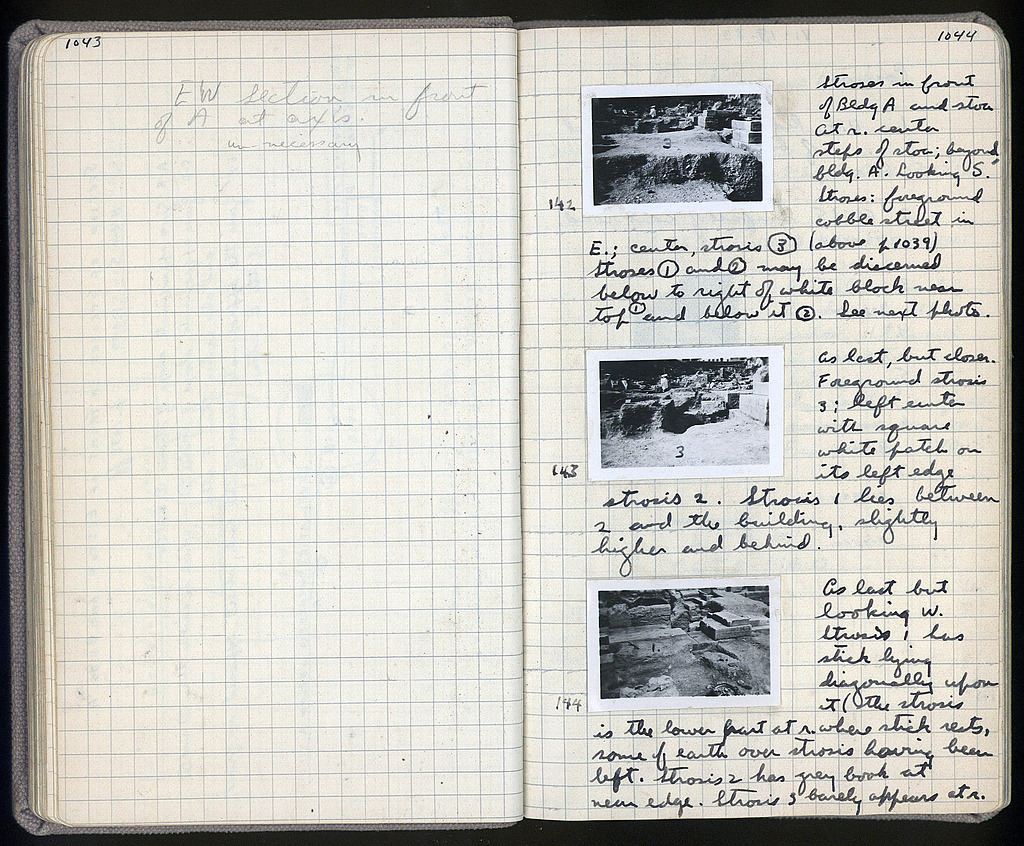 1043
EW Section in front
of A at axis.
un-necessary
1044
Stroses in front
of Bldg A and stoa
At r. center
steps of stoa; beyond,
bldg. A. Looking S.
Stroses: foreground
cobble street in
142
E.; center, strosis ③ (above p 1039)
Stroses ① and ② may be discerned
below to right of white block near
top ① and below it ②. See next photo.
As last, but closer.
Foreground strosis
3; left center
with square
white patch on
its left edge
3
143
strosis 2. Strosis 1 lies between
2 and the building, slightly
higher and behind.
As last but
looking W.
Strosis 1 has
stick lying
diagonally upon
it (the strosis
144
is the lower part at r. where stick rests,
some of earth over strosis having been
left. Strosis 2 has grey book at
near edge. Strosis 3 barely appears at r.